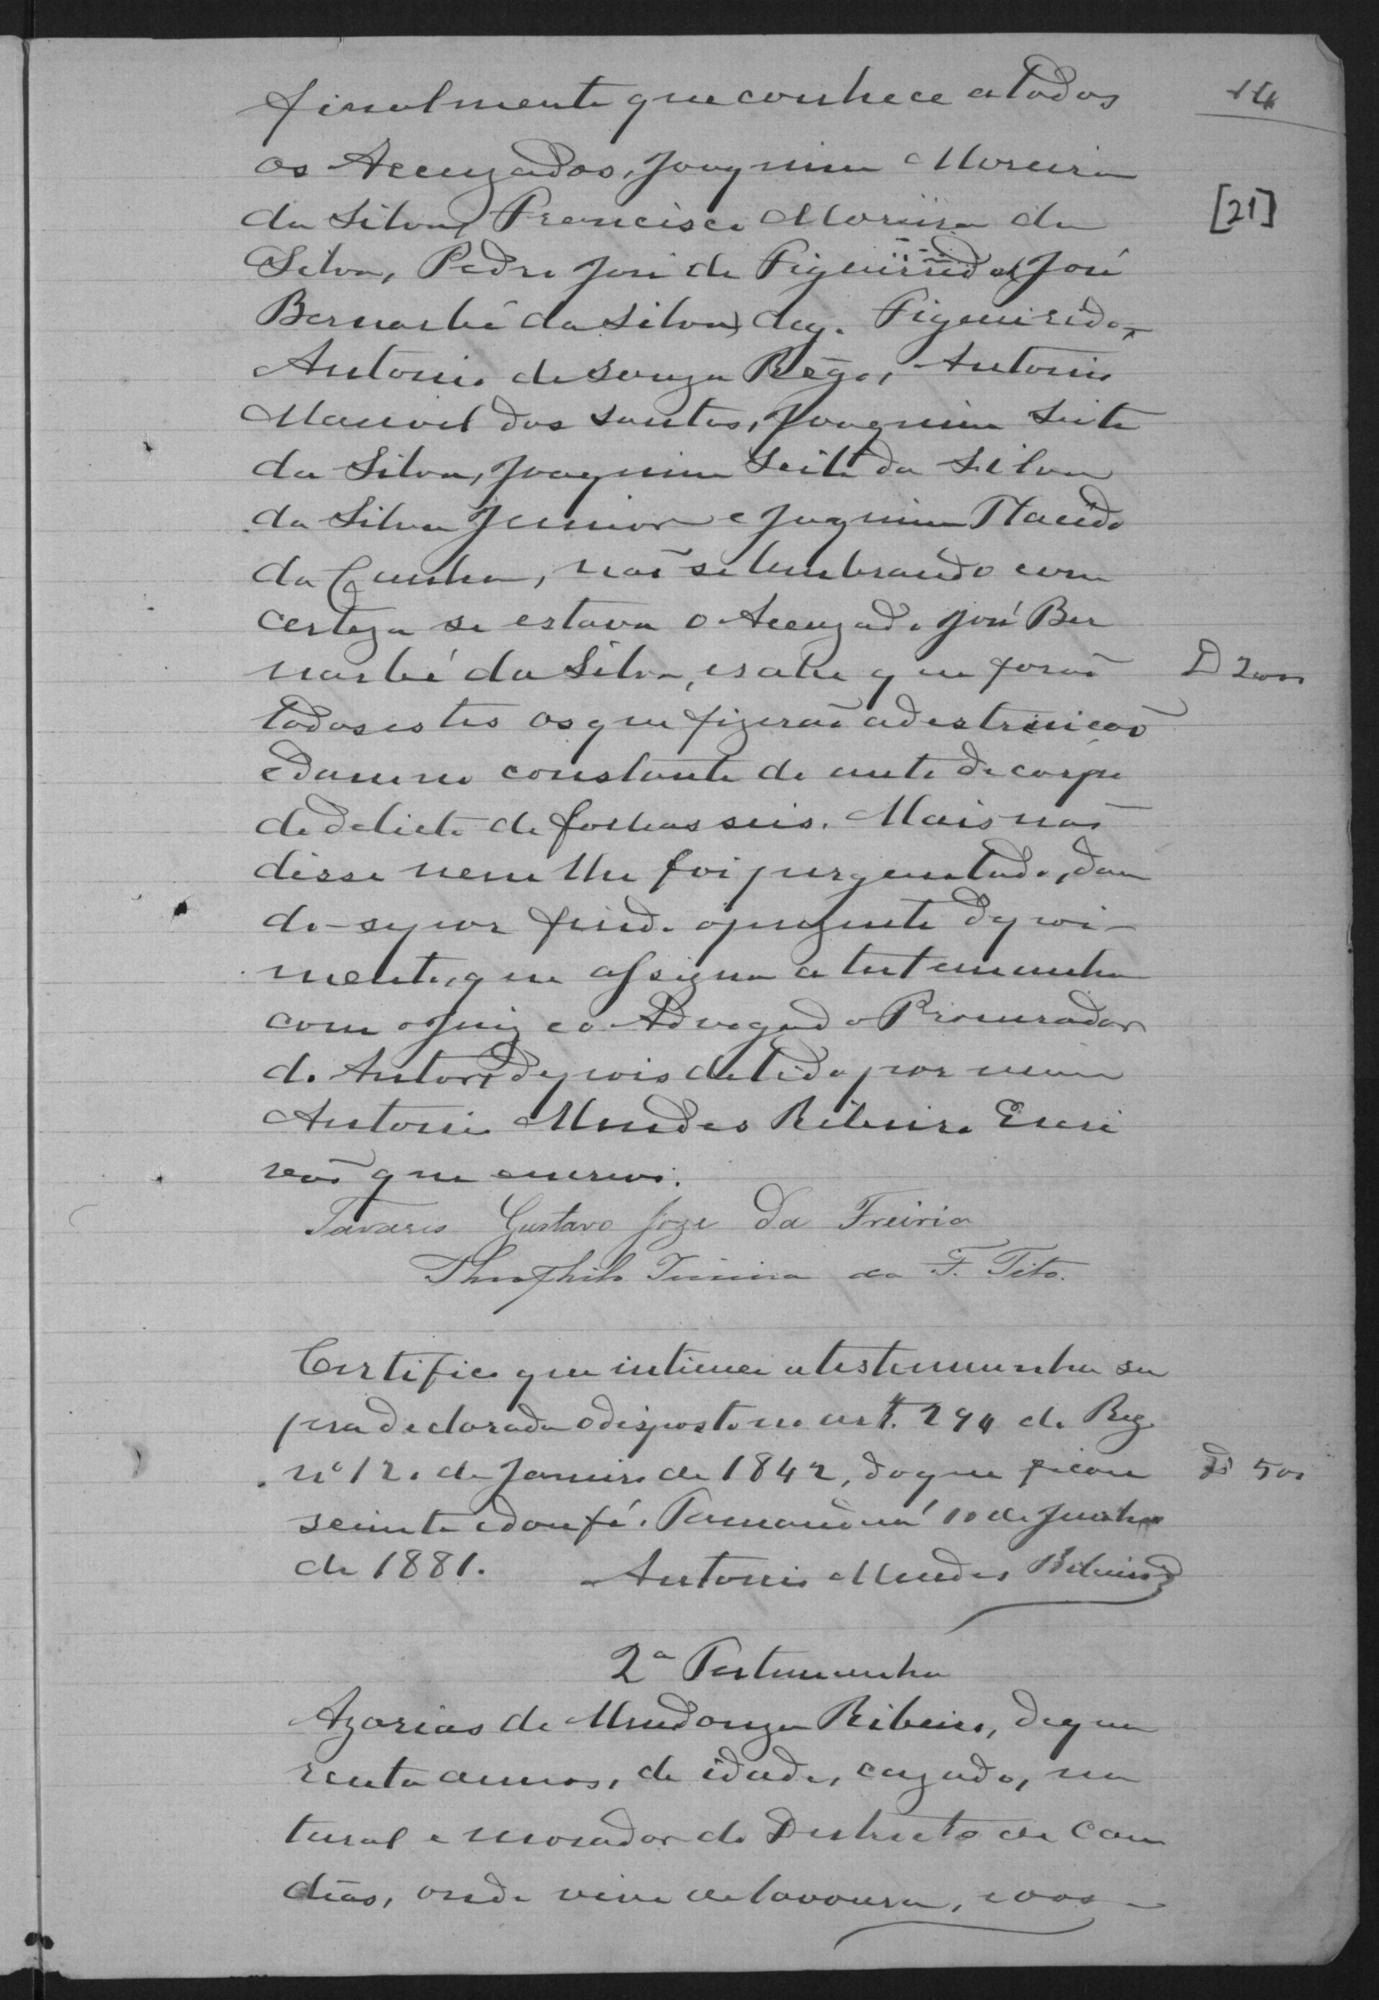 14
finalmente que conhece a todos
[21]
os Accuzados, Joaquim Moreira
da Silva, Francisco Moreira da
Silva, Pedro José de Figueiredo, José
Bernarbé da Silva, digo Figueiredo,
Antonio de Souza Rêgo, Antonio
Manoel dos Santos, Joaquim Leite
da Silva, Joaquim Leite da Silva
da Silva Junior e Joaquim Placido
da Cunha, não se lembrando com
certeza se estava o Accuzado José Ber
narbé da Silva, e sabe que forão
D 200
todos estes os que fizerão a destruicão
e damno constante do auto de corpo
de delicto de folhas seis. Mais não
disse nem lhe foi perguntado, dan
do-se por findo o prezente depoi-
mento, que assigna a testemunha
com o Juiz e o Advogado Procurador
do Autor, depois de lido por mim
Antonio Mendes Ribeiro Escri
vão que escrevi.
Tavares Gustavo Joze da Freiria
Theophilo da F. Tito.
Certifico que intimei a testemunha su
pra declarada o disposto no art. 294 do Reg.
nº 120 de Janeiro de 1842, do que ficou
D 500
sciente e dou fé. Tamanduá 10 de Junho
de 1881. Antonio Mendes Ribeiro
2ª Testemunha
Azarias de Mendonça Ribeiro, de qua
renta annos, de idade, cazado, na
tural e morador do Districto de Can
dêas, onde vive de lavoura, e aos